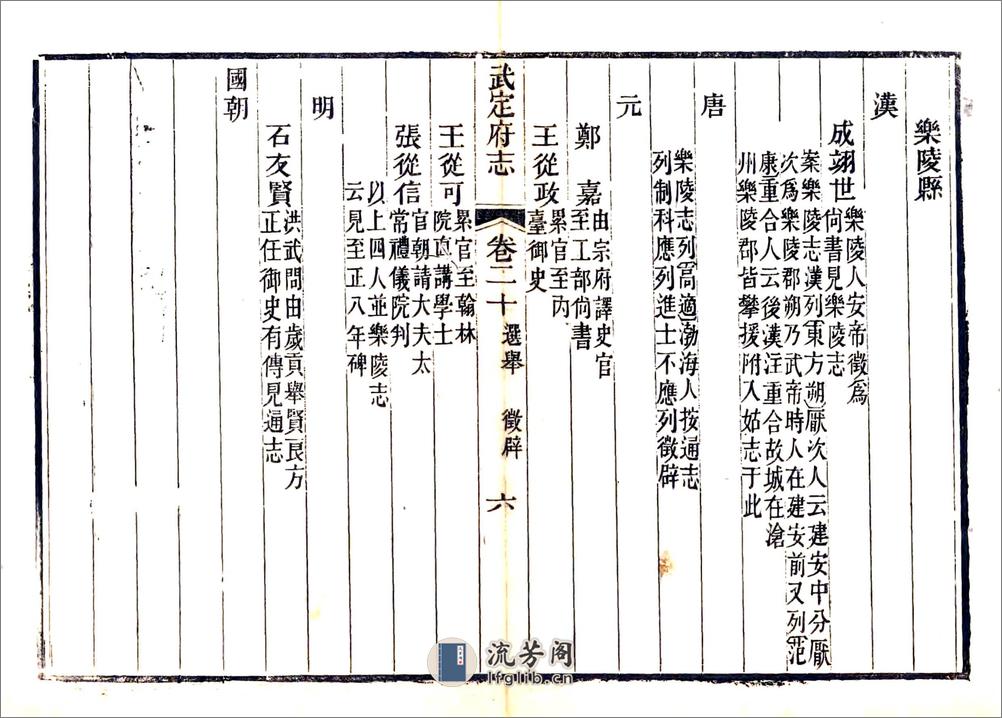 樂陵縣
漢
成翊世
樂陵人安帝徵為
尚書見樂陵志
案樂陵志漢列東方朔厭次人云建安中分厭
次為樂陵郡朔乃武帝時人在建安前又列范
康重合人云後漢注重合故城在滄
州樂陵郡皆攀援附入姑志于此
唐
樂陵志列高適渤海人按通志
列制科應列進士不應列徵辟
元
鄭嘉
由宗府譯史官
至工部尚書
王從政
累官至丙
臺御史
武定府志
卷二十
選舉
徵辟
六
王從可
累官至翰林
院直講學士
張從信
官朝請大夫太
常禮儀院判
以上四人並樂陵志
云見至正八年碑
明
石友賢
洪武問由歲貢舉賢良方
正任御史有傳見通志
國朝
流芳阁
lfglib.cn